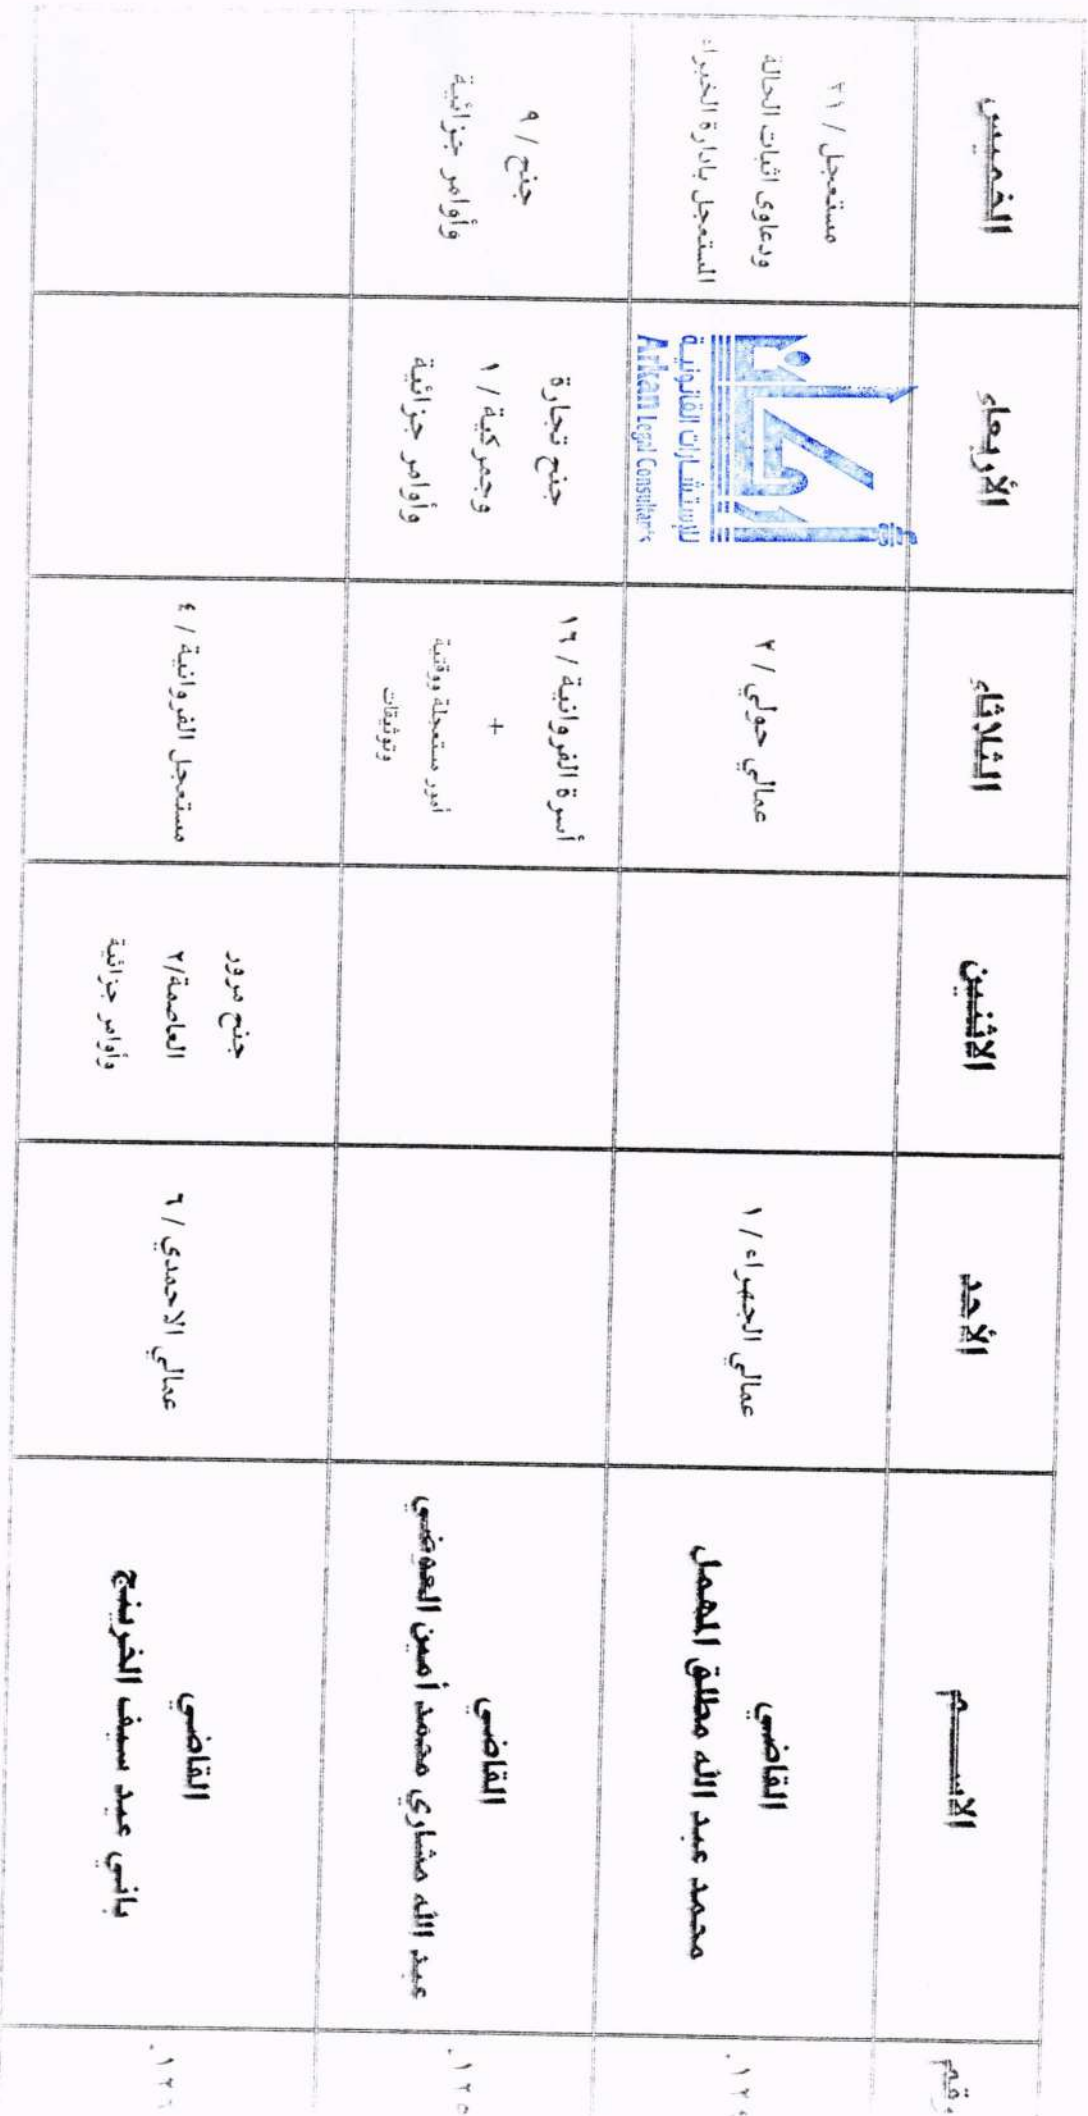 رقم
الاســـم
الأحد
الاثنين
الثلاثاء
الأربعاء
الخميس
القاضي
محمد عبد الله مطلق المهمل
عمالي الجهراء / ١
عمالي حولي / ٢
أركان
للإستشارات القانونية
Arkan Legal Consultants
مستعجل / ٢١
ودعاوى اثبات الحالة
المستعجل بادارة الخبراء
١٢٥.
القاضي
عبد الله مشاري محمد أمين العوضي
أسرة الفروانية / ١٦
+
أمور مستعجلة ووقتية
وتوثيقات
جنح تجارة
وجمركية / ١
وأوامر جزائية
جنح / ٩
وأوامر جزائية
القاضي
باني عيد سيف الخرينج
عمالي الاحمدي / ٦
جنح مرور
العاصمة/٢
وأوامر جزائية
مستعجل الفروانية / ٤